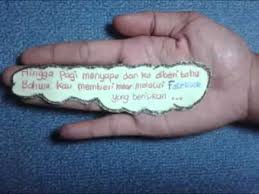 Hingga Pagi menyapa dan ku diberi tahu
Bahwa Kau memberi mawar melalui Facebook
yang berisikan ...